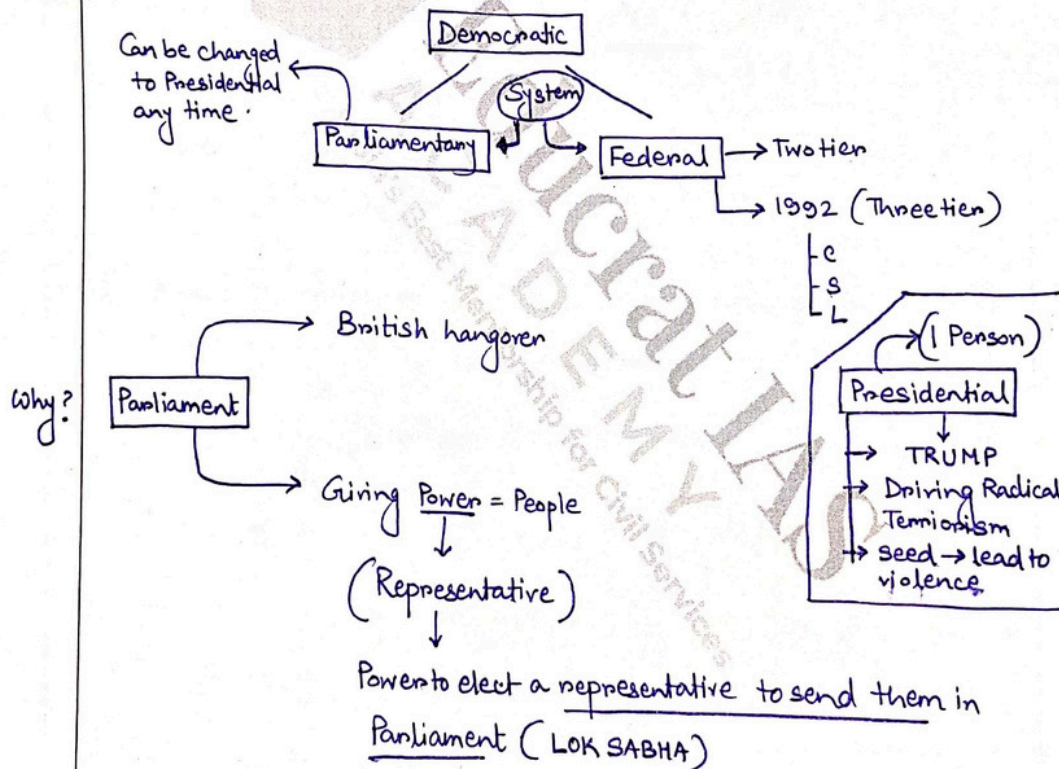 Democratic
Can be changed
to Presidential
any time.
System
Parliamentary
Federal
Two tier
1992 (Three tier)
C
S
L
British hangover
Why?
Parliament
Giving Power = People
(Representative)
Power to elect a representative to send them in
Parliament (LOK SABHA)
(1 Person)
Presidential
TRUMP
Driving Radical
Terriorism
seed → lead to
violence
ucrat IAS
ADEMY
s Best Mentorship for Civil Services